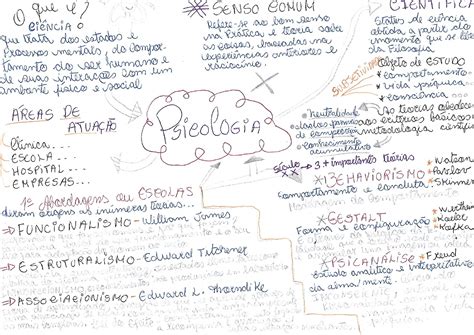 O que é?
CIÊNCIA!
que trata dos estados e
processos mentais, do compor-
tamento do ser humano e
de suas interações com um
ambiente físico e social
* SENSO COMUM
Refere-se ao bom senso
na prática e teoria sobre
as coisas, baseadas nas
experiências anteriores e
raciocínio.
CIENTÍFICA
Status de ciência
obtida a partir do
momento que se
da Filosofia
Objeto de ESTUDO
SUBJETIVIDADE
comportamento
vida psíquica
consciência
ÁREAS DE
ATUAÇÃO
Clínica...
ESCOLA...
HOSPITAL...
EMPRESAS...
PSICOLOGIA
Neutralidade
dados
de comparação
conhecimento
acumulativo
As teorias
os critérios básicos
metodologia científica
Século XX
3 + importantes teorias
1ª Abordagens ou ESCOLAS
deram origens as inúmeras teorias...
FUNCIONALISMO - William James
ESTRUTURALISMO - Edward Titchener
ASSOCIACIONISMO - Edward L. Thorndike
* BEHAVIORISMO
Comportamento e conduta
Watson
Pavlov
Skinner
* GESTALT
Forma e configuração
Koffka
* PSICANÁLISE
Freud
Estudo analítico e interpretativo
da alma/mente